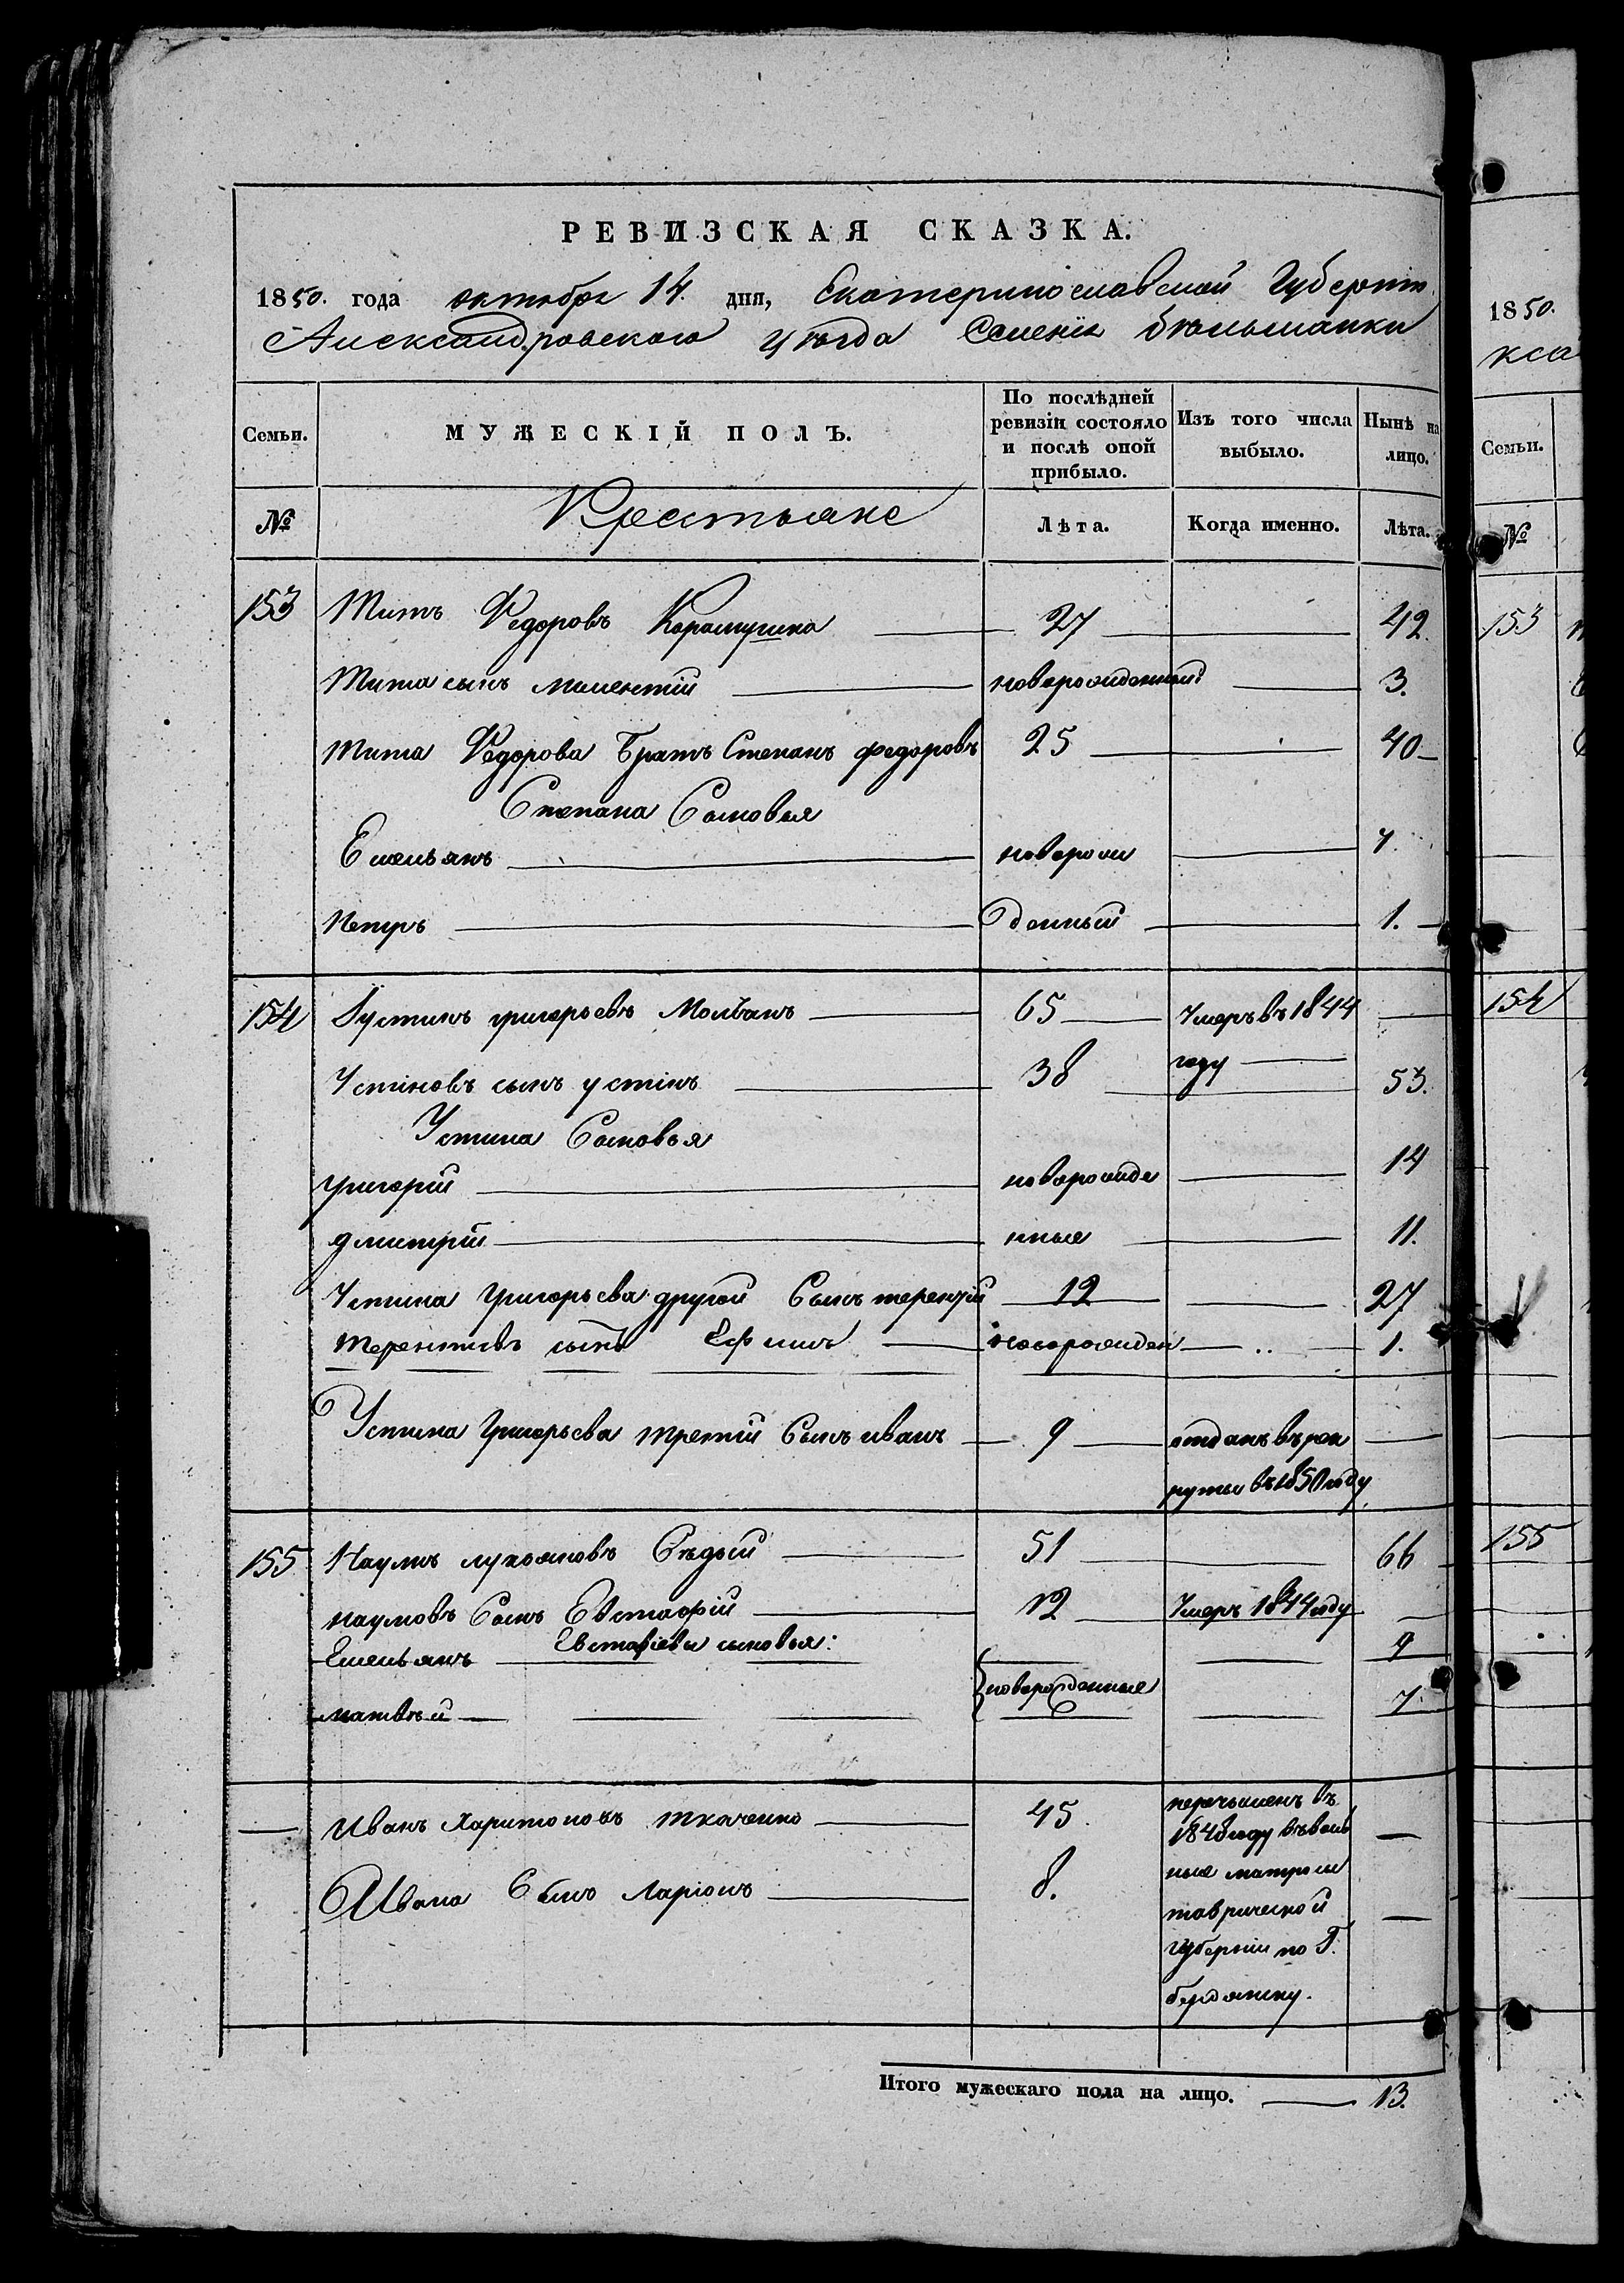 РЕВИЗСКАЯ СКАЗКА.
1850. года октября 14. дня, Екатеринославской Губерніи
Александровского уѣзда Селенія Бѣльманки
Семьи. МУЖЕСКІЙ ПОЛЪ. По послѣдней ревизіи состояло и послѣ оной прибыло. Изъ того числа выбыло. Нынѣ на лицо.
№ Крестьяне Лѣта. Когда именно. Лѣта.
153 Титъ Федоровъ 27 42.
Тита сынъ новорожденный 3.
Тита Федорова Братъ Степанъ федоровъ 25 40
Степана Сыновья
Емельянъ новорож 7.
Петръ денный 1.
154 Устинъ григорьевъ Молчанъ 65 Умеръ въ 1844
году
Устиновъ сынъ устінъ 38 53.
Устина Сыновья
григорій новорожде 14
дмитрій нные 11.
Устина Григорьева другой Сынъ терентій 12 27
терентіевъ сынъ Ефимъ новорожден 1.
Устина Григорьева третій Сынъ иванъ 9 отданъ въ рек
руты въ 1850 году
155 Наумъ лукьяновъ Сѣдый 51 66
наумовъ Сынъ Евстафій 12 Умеръ 1844 году
Евстафіевы сыновья:
Емельянъ 9
новорожденные
матвѣй 7.
Иванъ Харитоновъ ткаченко 45. перечисленъ въ
1848 году въ воль
Ивана Сынъ Ларіонъ 8. ные матросы
таврической
губерніи по Г.
бердянску.
Итого мужескаго пола на лицо. 13.
1850.
кса
Семьи.
№
153
154
155